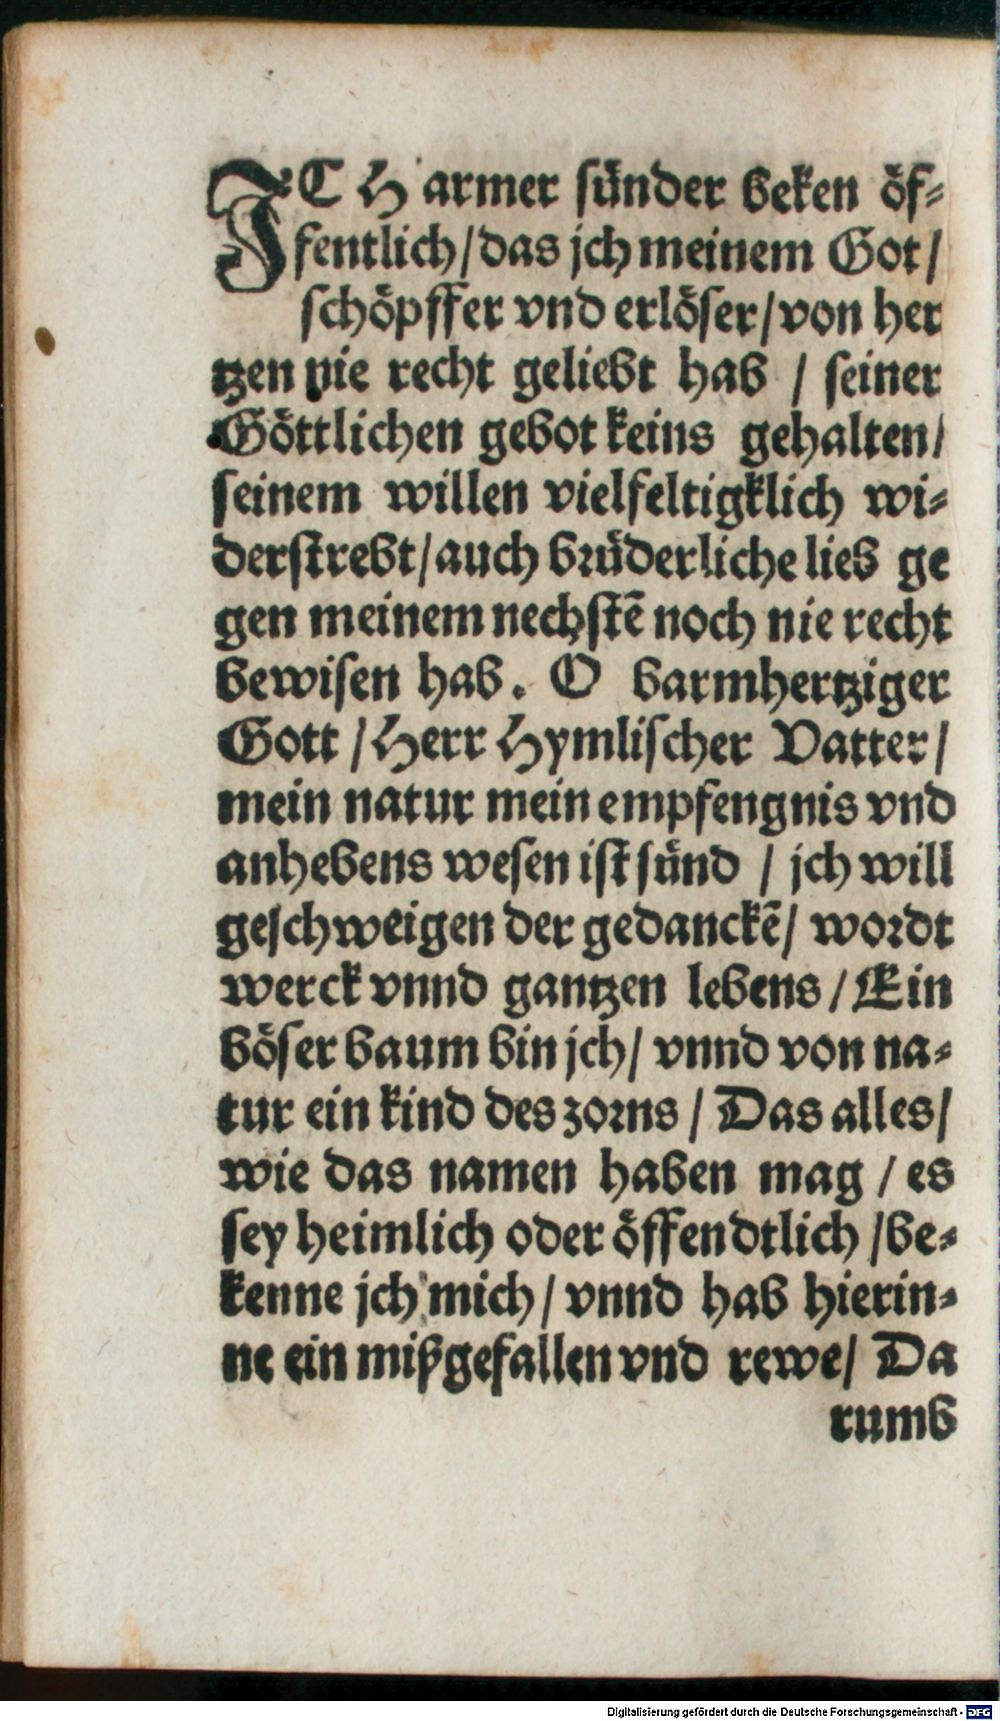 ICH armer sünder beken öf-
fentlich/das jch meinem Got/
schöpffer vnd erlöser/von her
tzen nie recht geliebt hab / seiner
Göttlichen gebot keins gehalten/
seinem willen vielfeltigklich wi-
derstrebt/auch brüderliche lieb ge
gen meinem nechstē noch nie recht
bewisen hab. O barmhertziger
Gott /Herr Hymlischer Vatter/
mein natur mein empfengnis vnd
anhebens wesen ist sünd / jch will
geschweigen der gedanckē/ wordt
werck vnnd gantzen lebens /Ein
böser baum bin jch/ vnnd von na-
tur ein kind des zorns / Das alles/
wie das namen haben mag / es
sey heimlich oder öffendtlich /be-
kenne jch mich/ vnnd hab hierin-
ne ein mißgefallen vnd rewe/ Da
rumb
Digitalisierung gefördert durch die Deutsche Forschungsgemeinschaft - DFG